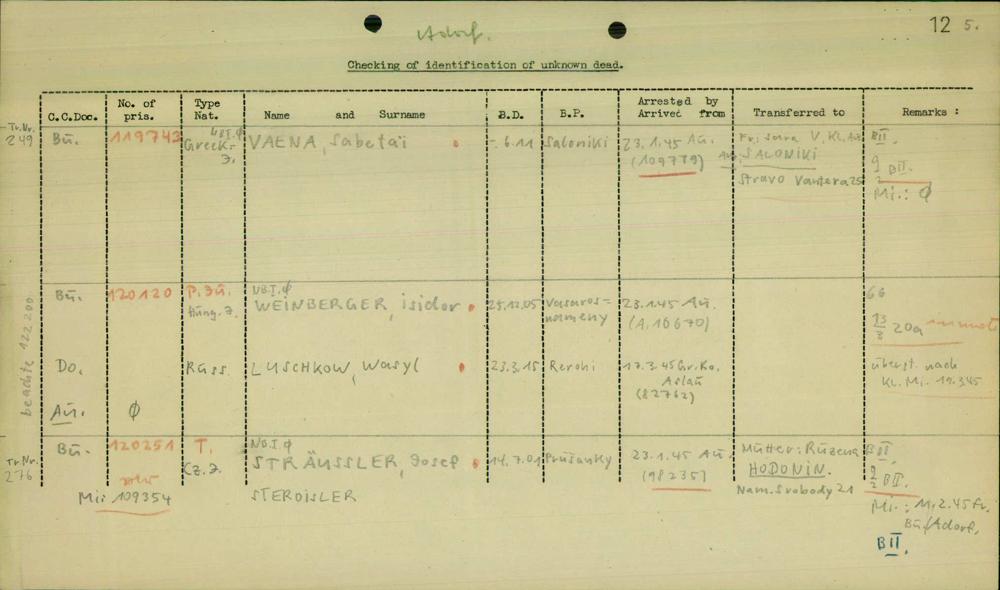 Adorf.
12 5.
Checking of identification of unknown dead.
C.C.Doc. No. of pris. Type Nat. Name and Surname B.D. B.P. Arrested by Arrived from Transferred to Remarks :
Tr.Nr. 249
Bu. 119743 Greek. J. VAENA, Sabetai -.6.11 Saloniki 23.1.45 Au. (109779)
SALONIKI
Stravo Vantera 25
BII.
9/2 BII.
Mi.: Ø
beachte 122200
Bu. 120120 P. Jü. Hung. J. NB.I. Ø
WEINBERGER, isidor 25.12.05 Vasaros=nameny 23.1.45 Au. (A. 16670)
66
13/3 20a
Do. Russ. LUSCHKOW, Wasyl 23.3.15 17.3.45 Gr. Ro. (82762)
überst. nach Kl. Mi. 19.3.45
Au. Ø
Tr.Nr. 276
Bu. 120251 T. Cz. J. NB.I. Ø
STRÄUSSLER, Josef 14.7.01 Prušanky 23.1.45 Au. (98235)
Mutter: Ruzena
HODONIN.
Nam. Svobody 21
BII.
9/2 BII.
Mi: 109354 STEROISLER
Mi.: 11.2.45 fr. Bu/Adorf.
BII.